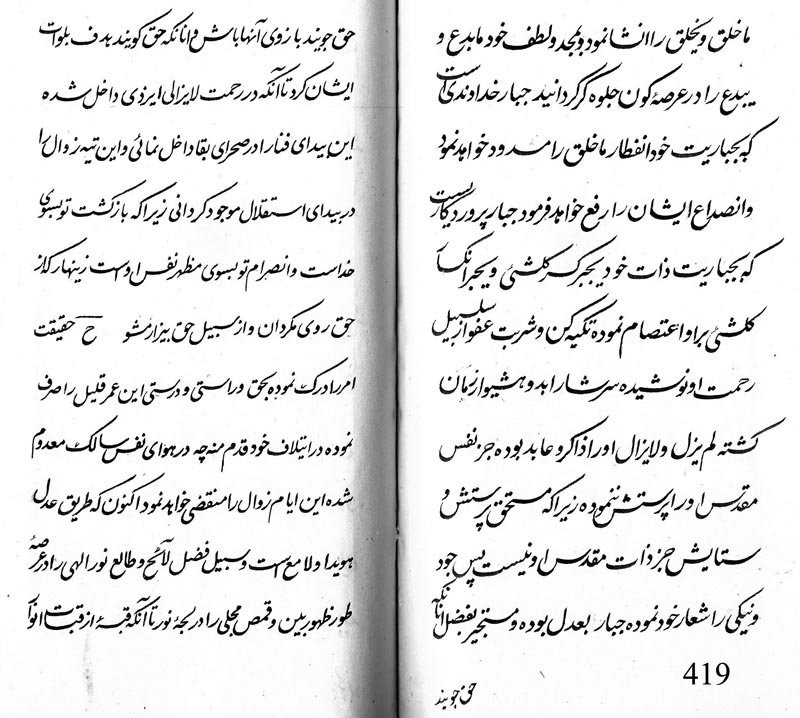 ماخلق و یخلق را انشا نموده و بمجد و لطف خود ما بدع و
یبدع را در عرصهٔ کون جلوه گر گردانید جبار خداوندی است
که بجباریت خود انفطار ماخلق را مسدود خواهد نمود
و انصداع ایشان را رفع خواهد فرمود جبار پروردگاریست
که بجباریت ذات خود یجبر کسر کلشئ و یجبر انکسار
کلشئ بر او اعتصام نموده تکیه کن و شربت عفو از سلسبیل
رحمت او نوشیده سرشار ابد و هشیوار زمان
گشته لم یزل و لا یزال او را ذاکر و عابد بوده جز نفس
مقدس او را پرستش ننموده زیرا که مستحق پرستش و
ستایش جز ذات مقدس او نیست پس جود
و نیکی را شعار خود نموده جبار بعدل بوده و مستجیر بفضل آنانکه
حق جویند
419
حق جویند بازوی آنها باش و آنانکه حق گویند هدف بلوات
ایشان کرد تا آنکه در رحمت لا یزالی ایزدی داخل شده
این بیدای فنا را در صحرای بقا داخل نمائی و این تیه زوال را
در بیدای استقلال موجود گردانی زیرا که بازگشت تو بسوی
خداست و انصرام تو بسوی مظهر نفس اوست زینهار که از
حق روی مگردان و از سبیل حق بیزار مشو ح حقیقت
امر را درک نموده بحق و راستی و درستی این عمر قلیل را صرف
نموده در ایتلاف خود قدم منه چه در هوای نفس سالک معدوم
شده این ایام زوال را منقضی خواهد نمود اکنون که طریق عدل
هویدا و لامع است و سبیل فضل لائح و طالع نور الهی را در عرصهٔ
طور ظهور بین و قمص مجلی را در لجهٔ نور تا آنکه قبسهٔ از قبسات انوار